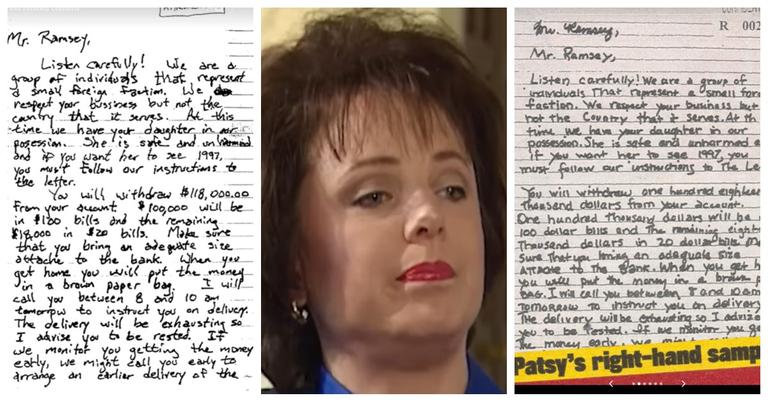 Mr. Ramsey,
Listen carefully! We are a
group of individuals that represent
a small foreign faction. We
respect your bussiness but not the
country that it serves. At this
time we have your daughter in our
posession. She is safe and unharmed
and if you want her to see 1997,
you must follow our instructions to
the letter.
You will withdraw $118,000.00
from your account. $100,000 will be
in $100 bills and the remaining
$18,000 in $20 bills. Make sure
that you bring an adequate size
attache to the bank. When you
get home you will put the money
in a brown paper bag. I will
call you between 8 and 10 am
tomorrow to instruct you on delivery.
The delivery will be exhausting so
I advise you to be rested. If
we monitor you getting the money
early, we might call you early to
arrange an earlier delivery of the
R 002
Mr. Ramsey,
Mr. Ramsey,
Listen carefully! We are a group of
individuals That represent a small fore
faction. We respect your business but
not the Country that it serves. At th
time we have your daughter in our
possession. She is safe and unharmed
if you want her to see 1997, you
must follow our instructions to The Le
You will withdraw one hundred eightee
Thousand dollars from your account.
One hundred Thousand dollars will be
100 dollar bills and The remaining eight
Thousand dollars in 20 dollar bills. M
Sure That you bring an adequate size
attache to the Bank. When you get h
you will put the money in a brown p
bag. I will call you between 8 and 10 am
Tomorrow to instruct you on delivery
The delivery will be exhausting so I advize
you to be rested. If we monitor you ge
the money early, we
Patsy's right-hand samp